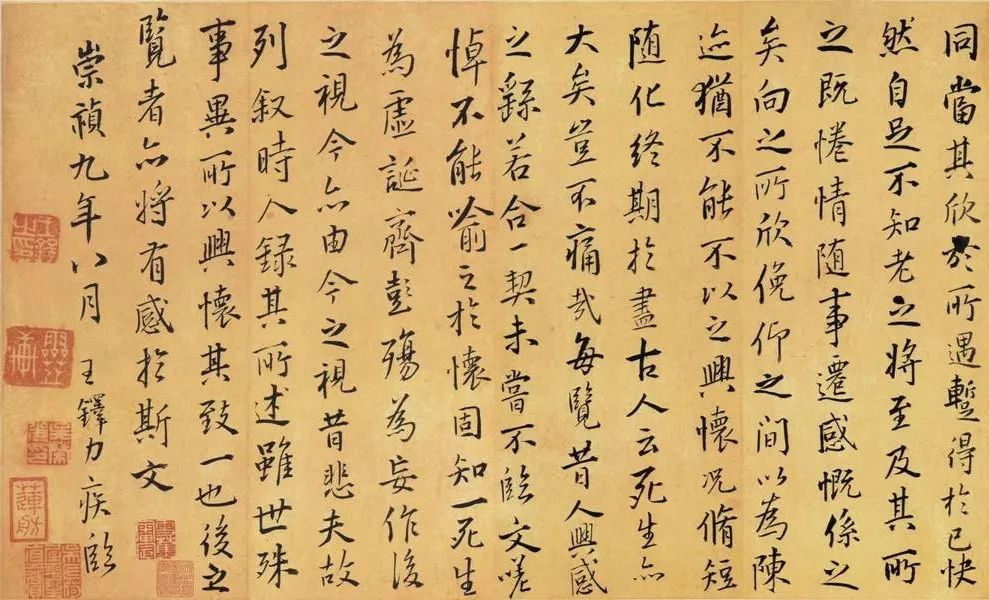 同當其欣於所遇蹔得於己快
然自足不知老之將至及其所
之既惓情隨事遷感慨係之
矣向之所欣俛仰之間以為陳
迹猶不能不以之興懷況脩短
随化終期於盡古人云死生亦
大矣豈不痛哉每覽昔人興感
之繇若合一契未嘗不臨文嗟
悼不能喻之於懷固知一死生
為虛誕齊彭殤為妄作後
之視今亦由今之視昔悲夫故
列叙時人録其所述雖世殊
事異所以興懷其致一也後之
覽者亦將有感於斯文
崇禎九年八月 王鐸力疾臨